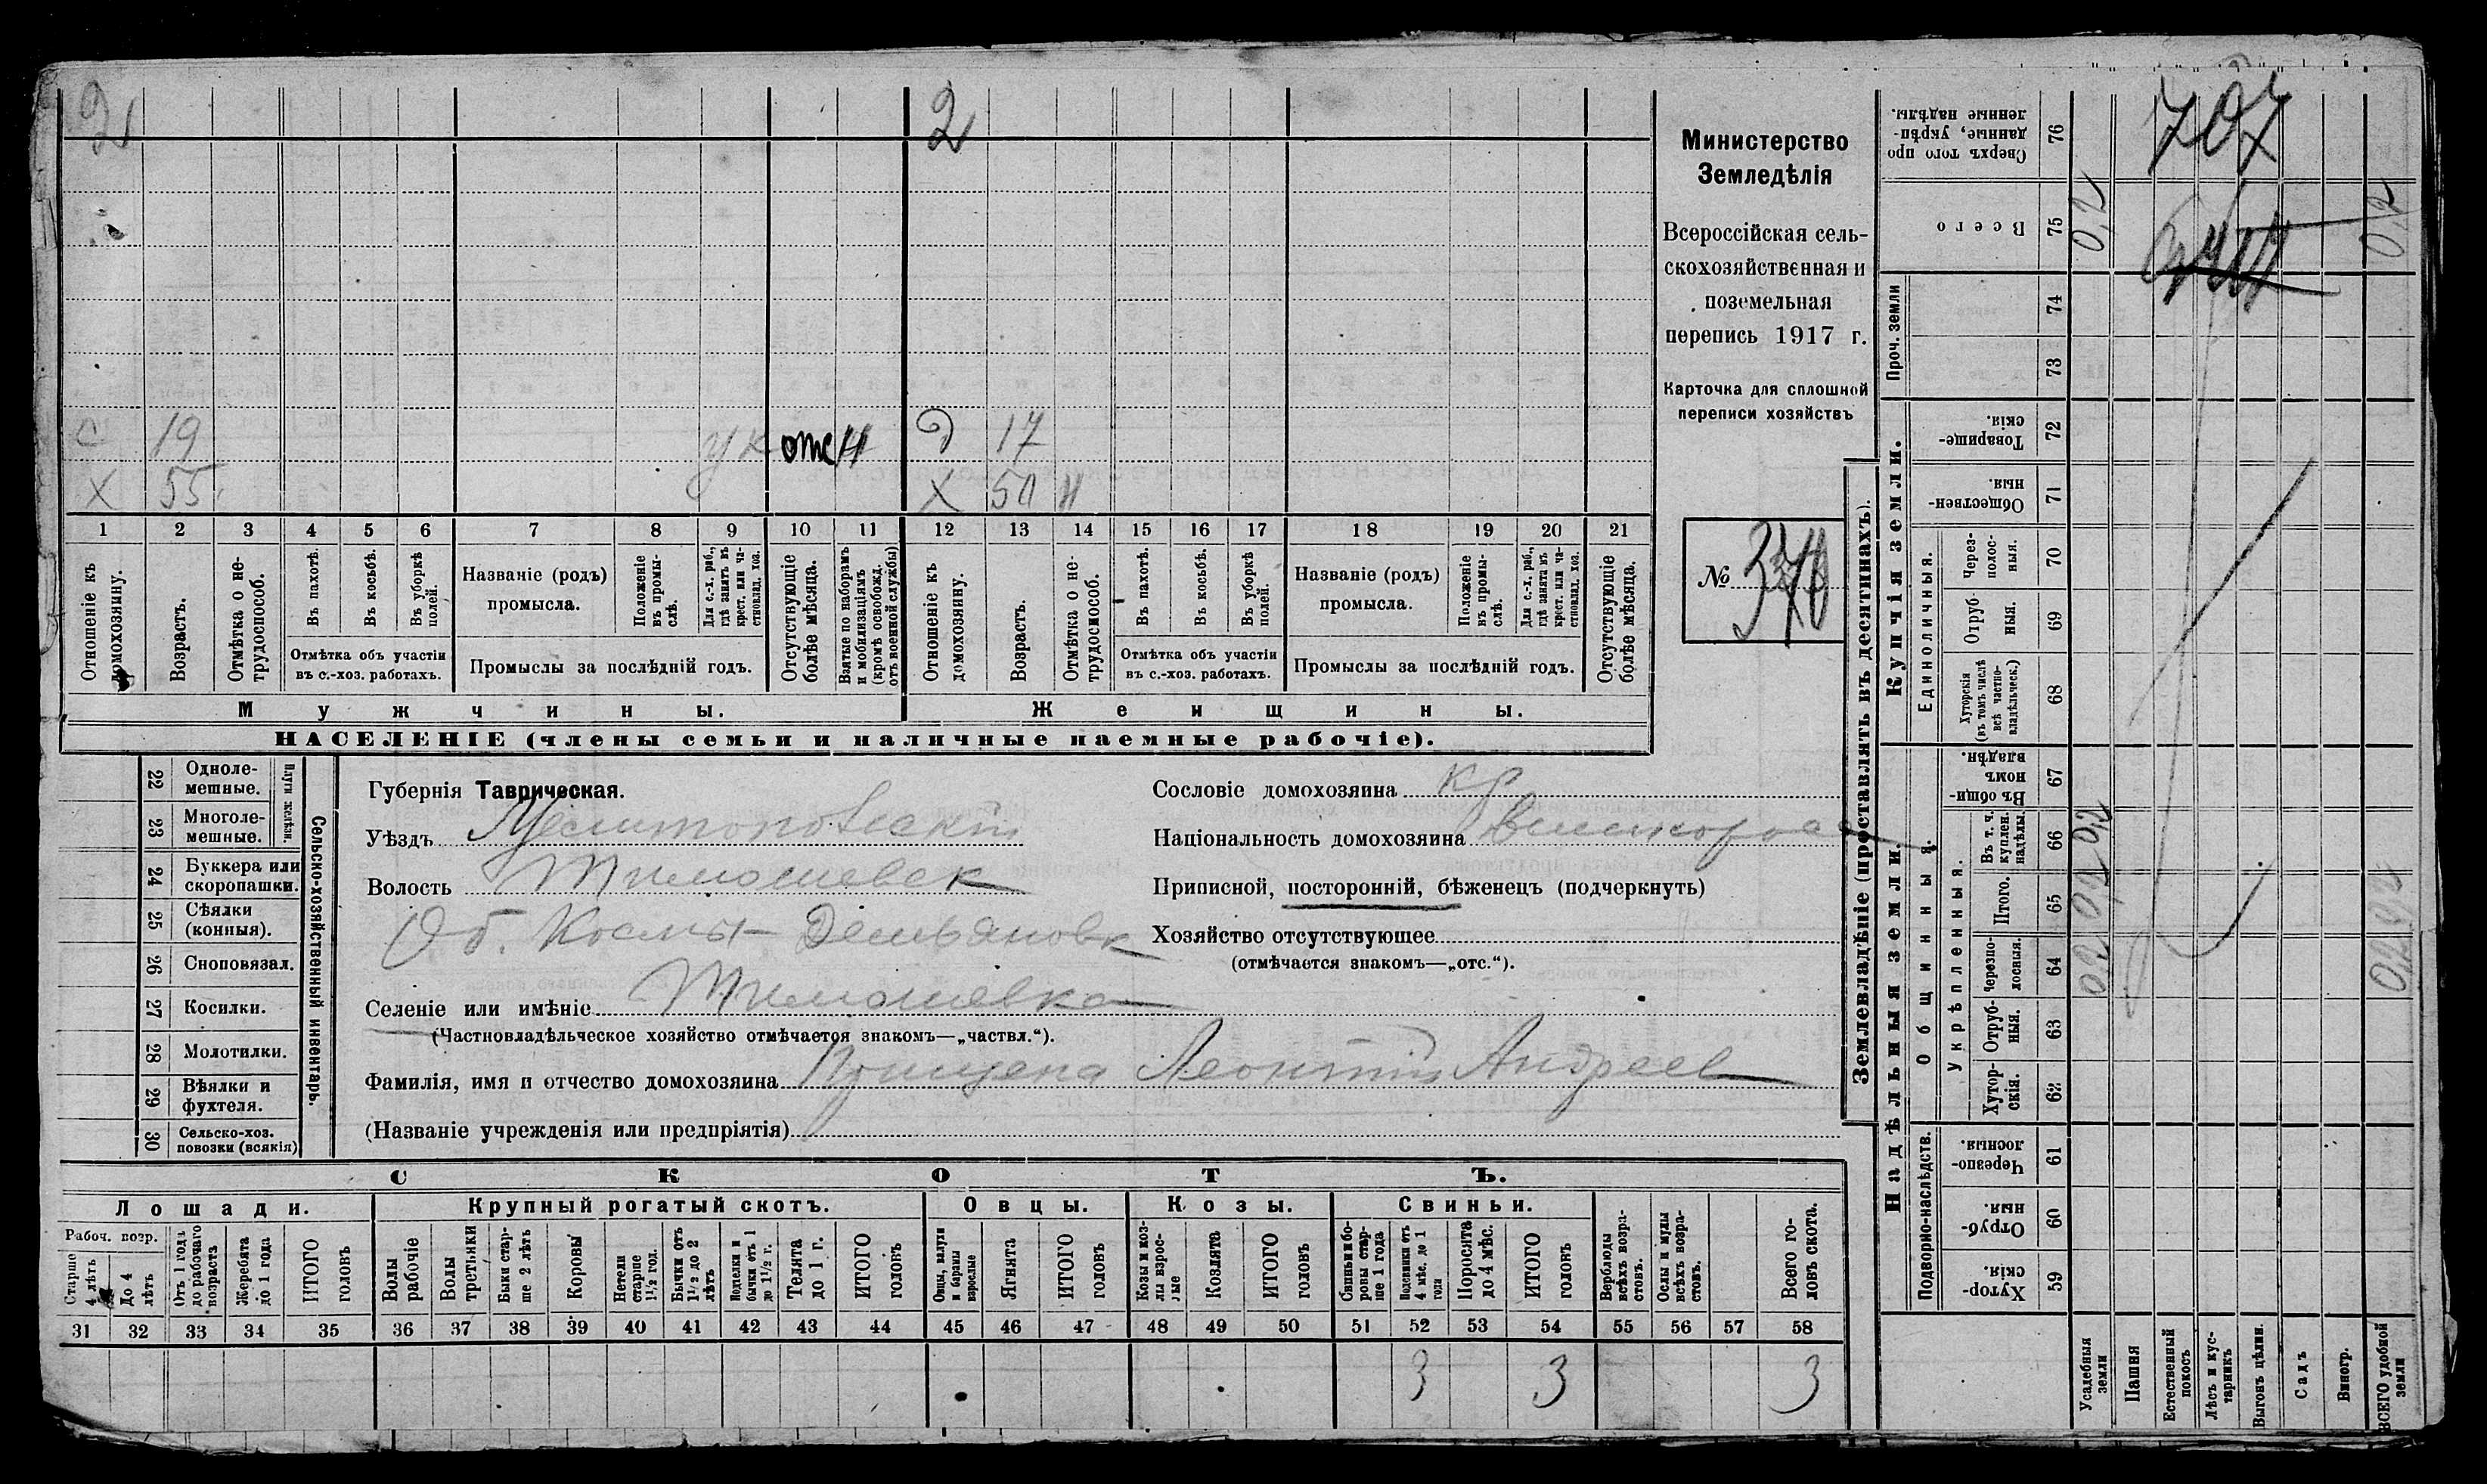 2 2
с 19 ук отс Н Д 17
Х 55 Х 50 Н
1 2 3 4 5 6 7 8 9 10 11 12 13 14 15 16 17 18 19 20 21
Отношеніе къ домохозяину.
Возрастъ.
Отмѣтка о не-трудоспособ.
Въ пахотѣ.
Въ косьбѣ.
Въ уборкѣ полей.
Отмѣтка объ участіи
въ с.-хоз. работахъ.
Названіе (родъ)
промысла.
Положеніе въ промыслѣ.
Для с.-х. раб., гдѣ занятъ въ крест. или частновлад. хоз.
Промыслы за послѣдній годъ.
Отсутствующіе болѣе мѣсяца.
Взятые по наборамъ и мобилизаціямъ (кромѣ освобожд. отъ военной службы)
Отношеніе къ домохозяину.
Возрастъ.
Отмѣтка о не-трудоспособ.
Въ пахотѣ.
Въ косьбѣ.
Въ уборкѣ полей.
Отмѣтка объ участіи
въ с.-хоз. работахъ.
Названіе (родъ)
промысла.
Положеніе въ промыслѣ.
Для с.-х. раб., гдѣ занята въ крест. или частновлад. хоз.
Промыслы за послѣдній годъ.
Отсутствующіе болѣе мѣсяца.
Мужчины. Женщины.
НАСЕЛЕНІЕ (члены семьи и наличные наемные рабочіе).
Министерство
Земледѣлія
Всероссійская сель-
скохозяйственная и
поземельная
перепись 1917 г.
Карточка для сплошной
переписи хозяйствъ
№
22 Одноле-мешные.
23 Многоле-мешные.
Плуги желѣзн.
24 Буккера или скоропашки.
25 Сѣялки (конныя).
26 Сноповязал.
27 Косилки.
28 Молотилки.
29 Вѣялки и фухтеля.
30 Сельско-хоз. повозки (всякія)
Сельско-хозяйственный инвентарь.
Губернія Таврическая.
Уѣздъ Мелитопольскій
Волость Тимошевск
Об. Космы-Демьяновк
Селеніе или имѣніе Тимошевка
(Частновладѣльческое хозяйство отмѣчается знакомъ—„частвл.“).
Фамилія, имя и отчество домохозяина Прищепа Леонтій Андреев
(Названіе учрежденія или предпріятія)
Сословіе домохозяина кр
Національность домохозяина великоросс
Приписной, посторонній, бѣженецъ (подчеркнуть)
Хозяйство отсутствующее
(отмѣчается знакомъ—„отс.“).
СКОТЪ.
Лошади. Крупный рогатый скотъ. Овцы. Козы. Свиньи.
Рабоч. возр.
Старше 4 лѣтъ
До 4 лѣтъ
Отъ 1 года до рабочаго возраста
Жеребята до 1 года
ИТОГО головъ
Волы рабочіе
Волы третьяки
Быки стар-ше 2 лѣтъ
Коровы
Нетели старше 1½ год.
Бычки отъ 1½ до 2 лѣтъ
Подтелки и бычки отъ 1 до 1½ г.
Телята до 1 г.
ИТОГО головъ
Овцы, валухи и бараны взрослые
Ягнята
ИТОГО головъ
Козы и коз-лы взрос-лые
Козлята
ИТОГО головъ
Свиньи и бо-ровы стар-ше 1 года
Подсвинки отъ 4 мѣс. до 1 года
Поросята до 4 мѣс.
ИТОГО головъ
Верблюды всѣхъ возра-стовъ.
Ослы и мулы всѣхъ возра-стовъ.
Всего го-ловъ скота.
31 32 33 34 35 36 37 38 39 40 41 42 43 44 45 46 47 48 49 50 51 52 53 54 55 56 57 58
3 3 3
Землевладѣніе (проставлять въ десятинахъ).
Надѣльныя земли. Купчія земли. Проч. земли
Подворно-наслѣдств.
Общинныя.
Укрѣпленныя.
Единоличныя.
Сверхъ того про-данные, укрѣп-ленные надѣлы. 76
Всего 75 0,2 0,2
74
73
Товарище-скія 72
Обществен-ныя. 71
Через-полос-ныя. 70
Отруб-ныя. 69
Хуторскія (въ томъ числѣ всѣ частно-владѣльческ.) 68
Въ общи-номъ владѣн. 67
Въ т. ч. куплен. надѣлы. 66 0,2
Итого. 65 0,2 0,2
Черезпо-лосныя. 64 0,2 0,2
Отруб-ныя. 63
Хутор-скія. 62
Черезпо-лосныя. 61
Отруб-ныя. 60
Хутор-скія. 59
Усадебныя земли
Пашня
Естественный покосъ
Лѣсъ и кус-тарникъ
Выгонъ цѣлин.
Садъ
Виногр.
ВСЕГО удобной земли
707